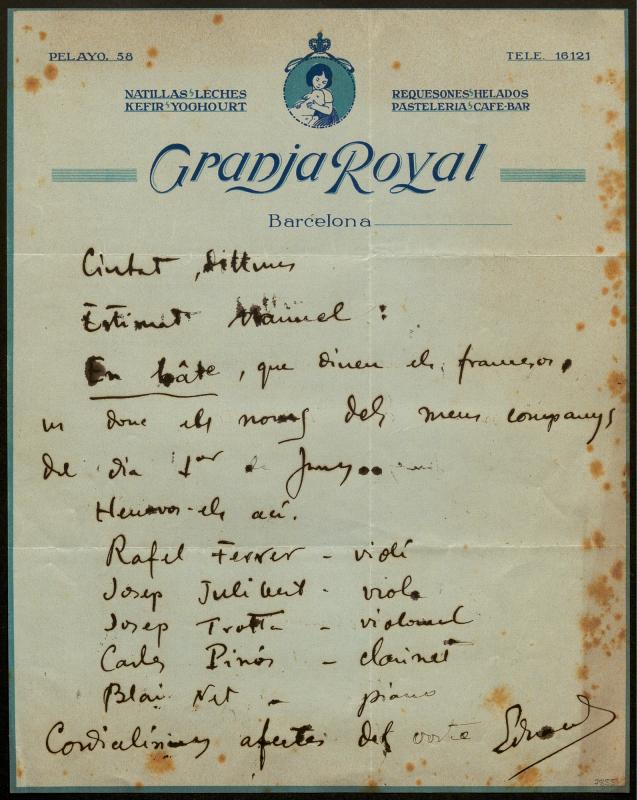 PELAYO, 58
TELE. 16121
NATILLAS LECHES
KEFIR YOGHOURT
REQUESONES HELADOS
PASTELERIA CAFE-BAR
Granja Royal
Barcelona
Ciutat, dilluns
Estimat Manuel :
En hâte, que diuen els francesos,
us donc els noms dels meus companys
del dia 1er de Juny
Heus-els ací.
Rafel Ferrer - violí
Josep Julibert - viola
Josep Trotta - violoncel
Carles Pinós - clarinet
Blai Net - piano
Cordialíssimes afectes del vostre
2855